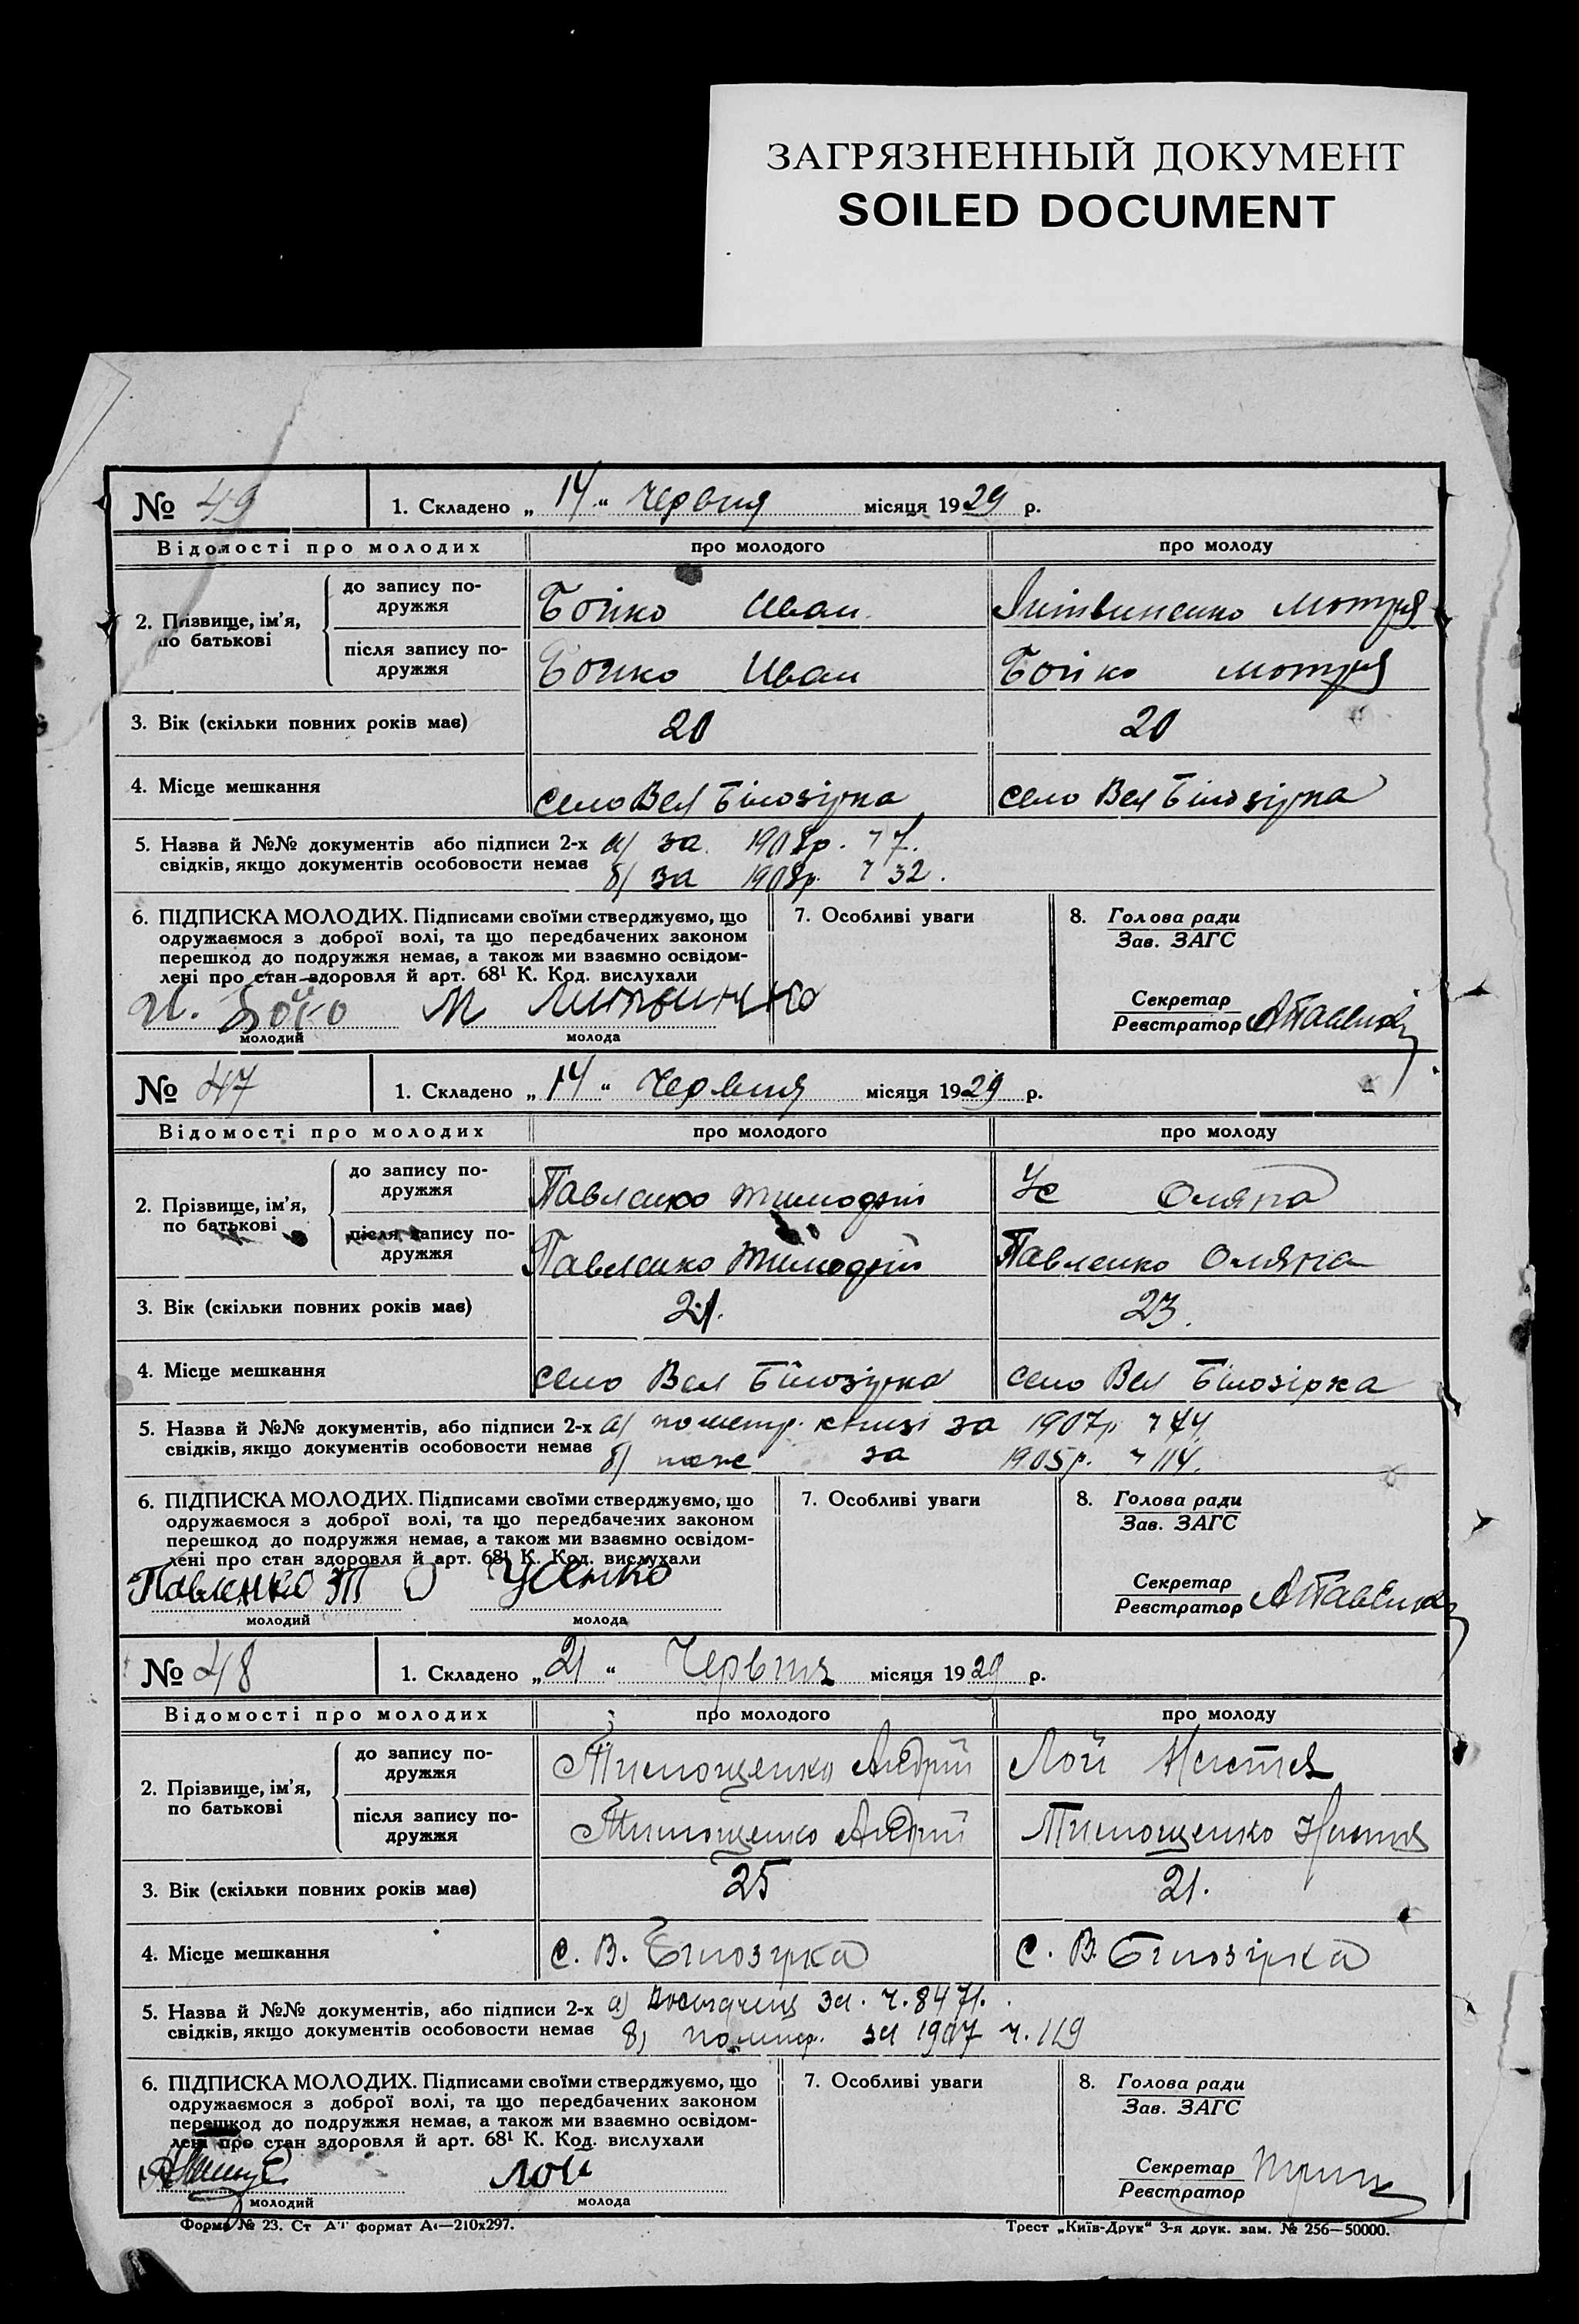 ЗАГРЯЗНЕННЫЙ ДОКУМЕНТ
SOILED DOCUMENT
№ 49 1. Складено „ 14 “ Червня місяця 1929 р.
Відомості про молодих про молодого про молоду
2. Прізвище, ім'я, по батькові
до запису по-
дружжя
Бойко Иван Литвиненко Мотря
після запису по-
дружжя
Бойко Иван Бойко Мотря
3. Вік (скільки повних років має) 20 20
4. Місце мешкання село Вел Білозірка село Вел Білозірка
5. Назва й №№ документів або підписи 2-х а) за 1908р. ч 7.
свідків, якщо документів особовости немає б) за 1908р. ч 32.
6. ПІДПИСКА МОЛОДИХ. Підписами своїми стверджуємо, що 7. Особливі уваги 8. Голова ради
одружаємося з доброї волі, та що передбачених законом Зав. ЗАГС
перешкод до подружжя немає, а також ми взаємно освідом-
лені про стан здоровля й арт. 68¹ К. Код. вислухали
Секретар
И. Бойко М Литвин Реєстратор
молодий молода
№ 47 1. Складено „ 14 “ Червня місяця 1929 р.
Відомості про молодих про молодого про молоду
2. Прізвище, ім'я,
по батькові
до запису по-
дружжя
Павленко Тимофій Ус Оляна
після запису по-
дружжя
Павленко Тимофій Павленко Оляна
3. Вік (скільки повних років має) 21. 23.
4. Місце мешкання село Вел Білозірка село Вел Білозірка
5. Назва й №№ документів, або підписи 2-х а) по метр. книзі за 1907р ч 74
свідків, якщо документів особовости немає б) тоже за 1905р. ч 114.
6. ПІДПИСКА МОЛОДИХ. Підписами своїми стверджуємо, що 7. Особливі уваги 8. Голова ради
одружаємося з доброї волі, та що передбачених законом Зав. ЗАГС
перешкод до подружжя немає, а також ми взаємно освідом-
лені про стан здоровля й арт. 68¹ К. Код. вислухали
Секретар
Павленко Т О Усенко Реєстратор АПавленко
молодий молода
№ 48 1. Складено „ 21 “ Червня місяця 1929 р.
Відомості про молодих про молодого про молоду
2. Прізвище, ім'я,
по батькові
до запису по-
дружжя
Тимощенко Андрій Лой Настя
після запису по-
дружжя
Тимощенко Андрій Тимощенко Настя
3. Вік (скільки повних років має) 25 21.
4. Місце мешкання с. В. Білозірка с. В. Білозірка
5. Назва й №№ документів, або підписи 2-х а) за ч. 8471.
свідків, якщо документів особовости немає б) за 1907 ч. 119
6. ПІДПИСКА МОЛОДИХ. Підписами своїми стверджуємо, що 7. Особливі уваги 8. Голова ради
одружаємося з доброї волі, та що передбачених законом Зав. ЗАГС
перешкод до подружжя немає, а також ми взаємно освідом-
лені про стан здоровля й арт. 68¹ К. Код. вислухали
Секретар
Лой Реєстратор
молодий молода
Форма № 23. Ст формат А4—210х297. Трест „Київ-Друк“ 3-я друк. зам. № 256—50000.